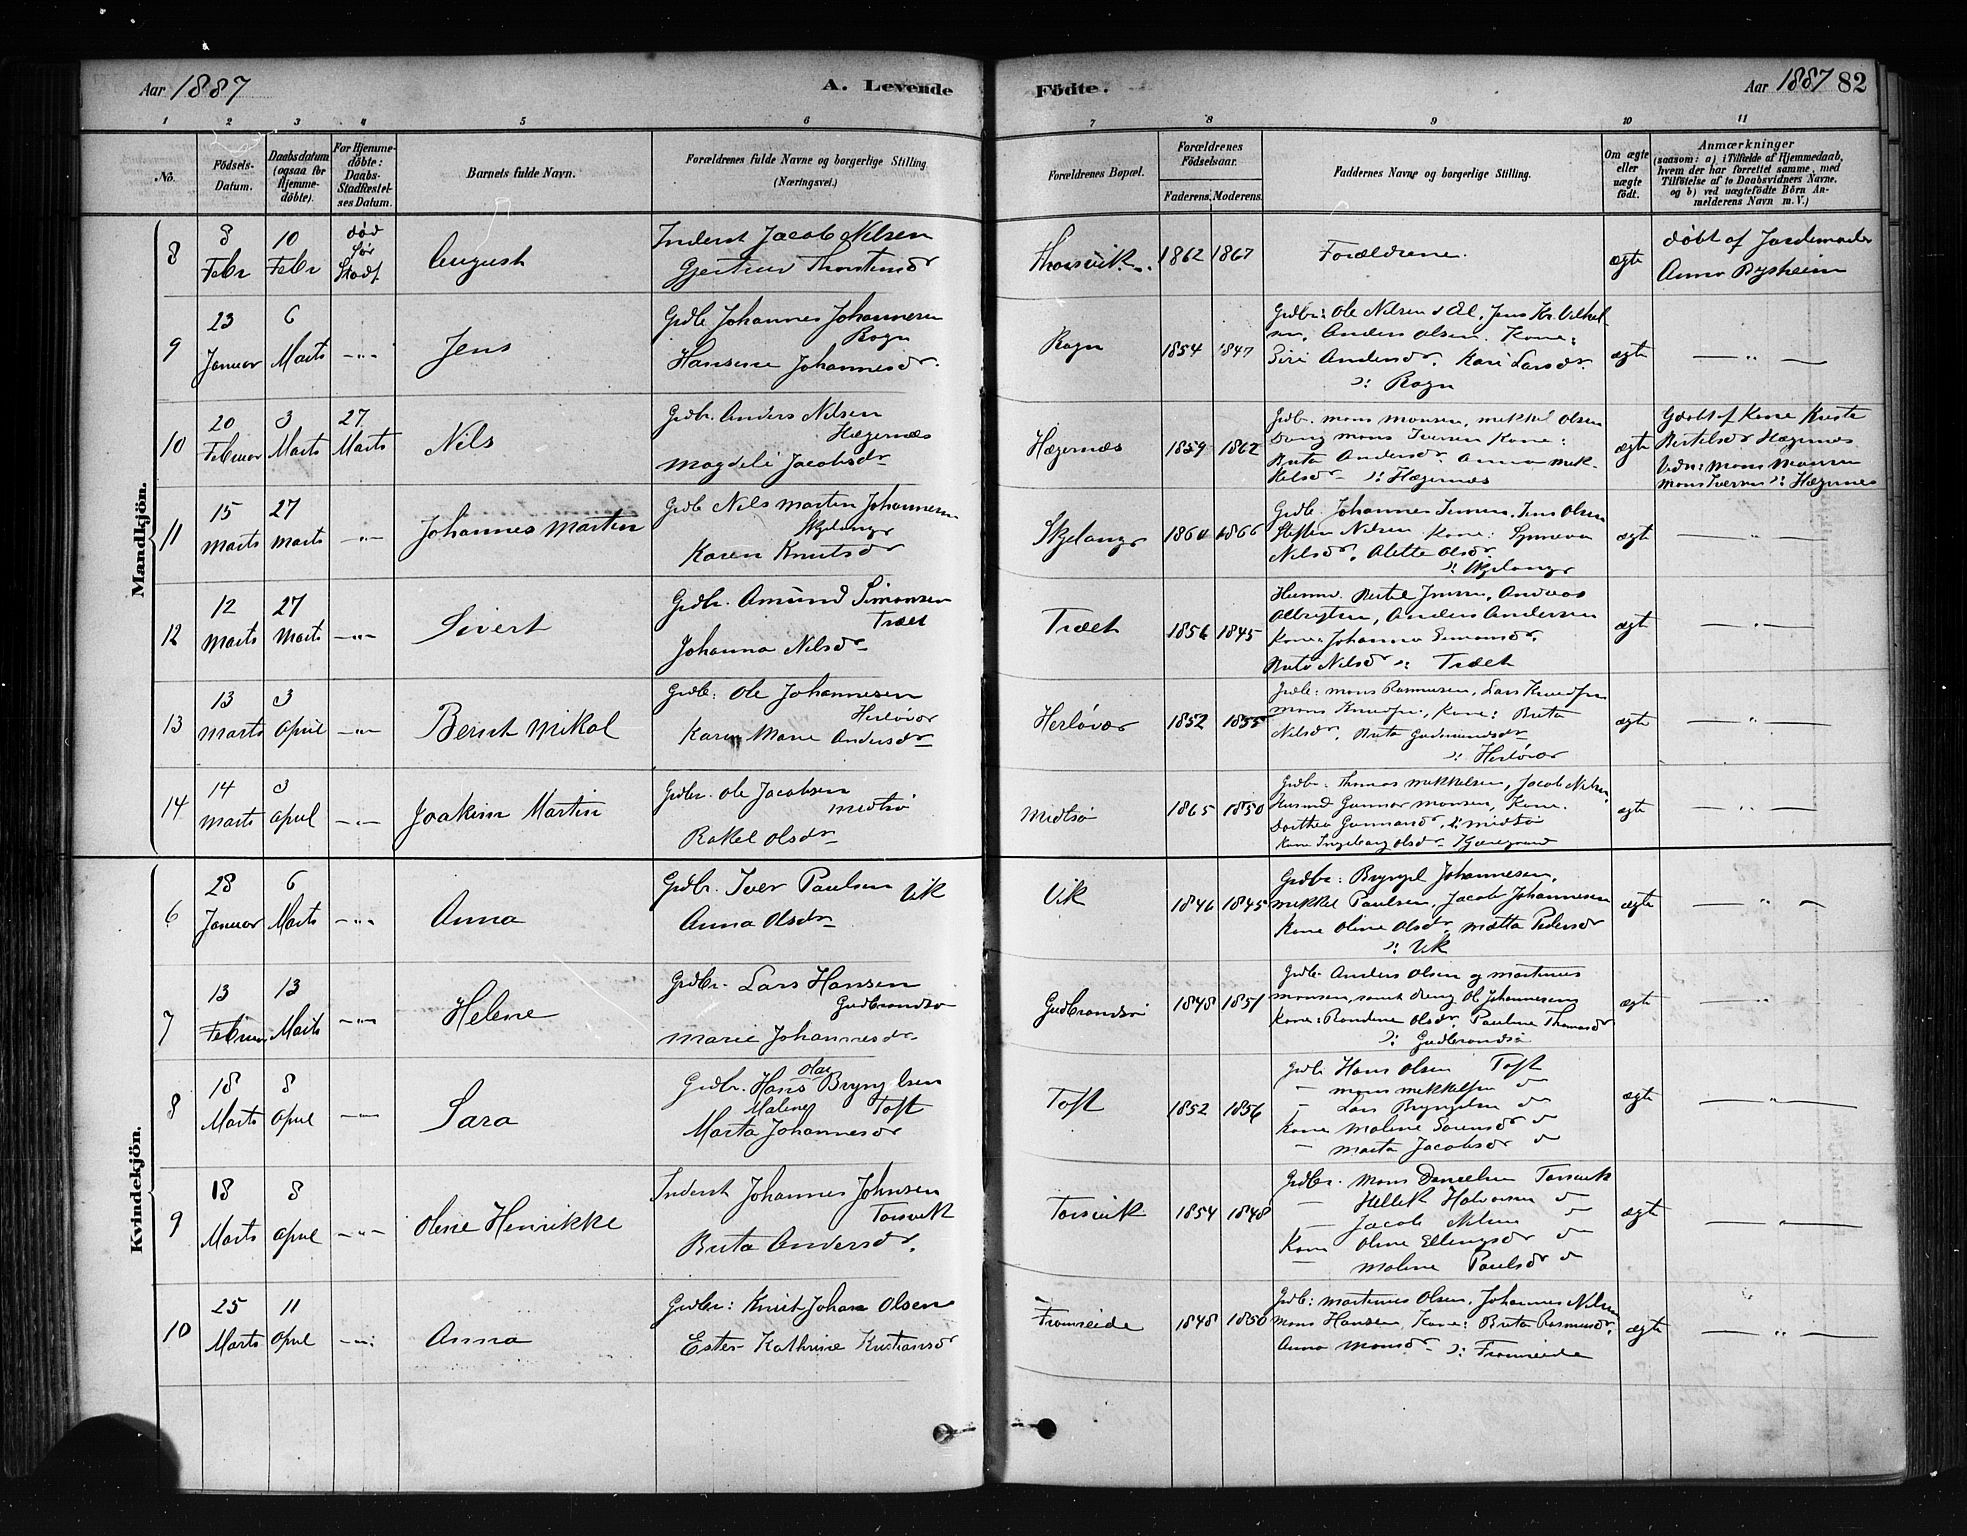 Aar 1887 A. Levende Födte. Aar 1887 82
1 2 3 4 5 6 7 8 9 10 11
No. Födsels-Datum. Daabsdatum (ogsaa for Hjemmedöbte). For Hjemmedöbte: Daabs-Stadfæstelses Datum. Barnets fulde Navn. Forældrenes fulde Navne og borgerlige Stilling (Næringsvei.) Forældrenes Bopæl. Forældrenes Födselsaar. Faderens. Moderens. Faddernes Navne og borgerlige Stilling. Om ægte eller uægte födt. Anmærkninger (saasom: a) i Tilfælde af Hjemmedaab, hvem der har forrettet samme, med Tilföielse af to Daabsvidners Navne. og b) ved uægtefödte Börn Anmelderens Navn m. V.)
Mandkjön.
8 8 Febr 10 Febr død før Stadf August Inderst Jacob Nilsen
Gjertrud Thorstensdr Thorsvik 1862 1867 Forældrene. ægte døbt af Jordemoder
Anna Bysheim
9 23 Januar 6 Marts -"- Jens Grdb Johannes Johannesen
Rogn
Hansine Johannesdr. Rogn 1854 1847 Grdbr: Ole Nilsen, Jens Kr. Vilhel-
sen, Anders Olsen. Kone:
Siri Andersdr. Kari Larsdr.
Rogn ægte — " —
10 20 Februar 3 Marts 27 Marts Nils Grdbr. Anders Nilsen
Hægernæs
Magdeli Jacobsdr Hægernæs 1859 1862 Grdbr. Mons Monsen, Mekkel Olsen
Dreng Mons Iversen Kone:
Brita Andersdr. Anna Mek-
kelsdr Hægernæs ægte Gdøbt af Kone
Bertelsdr Hægernæs
Vidn: Mons Monsen
Mons Iversen Hægernes
11 15 Marts 27 Marts -"- Johannes Martin Grdb Nils Martin Johannesen
Skjelanger
Karen Knutsdr Skjelangr 1860 1866 Grdb. Johannes Jensen, Jens Olsen
Steffen Nilsen Kone: Synneva
Nilsdr, Alette Olsdr.
Skjelangr ægte — " —
12 12 Marts 27 Marts -"- Sivert Grdbr. Amund Simonsen
Træet
Johanna Nilsdr Træet 1856 1845 Husmd. Bertel Jensen, Andreas
Albrigtsen, Anders Andersen
Kone: Johanna Simonsdr.
Brita Nilsdr Træet ægte — " —
13 13 Marts 3 April -"- Bernt Mikal Grdb: Ole Johannesen
Herløvær
Karen Marie Andersdr Herløvær 1852 1855 Grdb: Mons Rasmusen, Lars Knudsen
Mons Knudsen, Kone: Brita
Nilsdr, Brita Gudmundsdr
Herløver ægte — " —
14 14 Marts 3 April -"- Joakim Martin Grdbr. Ole Jacobsen
Midtsø
Rakel Olsdr Midtsø 1865 1850 Grdbr. Thomas Mikkelsen, Jacob Nilsen
Husmd Gunnar Monsen, Kone:
Dorthea Gunnarsdr, Midtsø
Kone Ingeborg Olsdr ægte — " —
Kvindekjön.
6 28 Januar 6 Marts -"- Anna Grdbr. Iver Paulsen Vik
Anna Olsdr Vik 1846 1845 Grdbr: Bryngel Johannesen,
Mikkel Paulsen, Jacob Johannesen
Kone Oline Olsdr, Mætta Pedersdr
Vik ægte — " —
7 13 Februar 13 Marts -"- Helene Grdbr. Lars Hansen
Gudbrandsø
Marie Johannesdr Gudbrandsø 1848 1851 Grdb. Anders Olsen og Martinus
Monsen, samt dreng Ol Johannesen
Kone: Randine Olsdr, Pauline Thomasdr
Gudbrandsø ægte — " —
8 18 Marts 8 April -"- Sara Grdbr. Hans Olai Bryngelsen
Toft
Marta Malene Johannesdr Toft 1852 1856 Grdb Hans Olsen Toft
— Mons Mekkelsen do
— Lars Bryngelsen do
Kone Malene Sørensdr do
— Marta Jacobsdr do ægte — " —
9 18 Marts 8 April -"- Oline Henrikke Inderst Johannes Johnsen
Torsvik
Brita Andersdr. Torsvik 1854 1848 Grdbr. Mons Danielsen Torsvik
— Hellek Halvorsen do
— Jacob Nilsen do
Kone Oline Ellingsdr do
— Malene Paulsdr do ægte — " —
10 25 Marts 11 April -"- Anna Grdbr: Knut Johan Olsen
Ester Kathrine Kristiansdr Fromreide 1848 1850 Grdb: Martinus Olsen, Johannes Nilsen
Mons Hansen, Kone: Brita Rasmusdr,
Anna Monsdr Fromreide ægte — " —